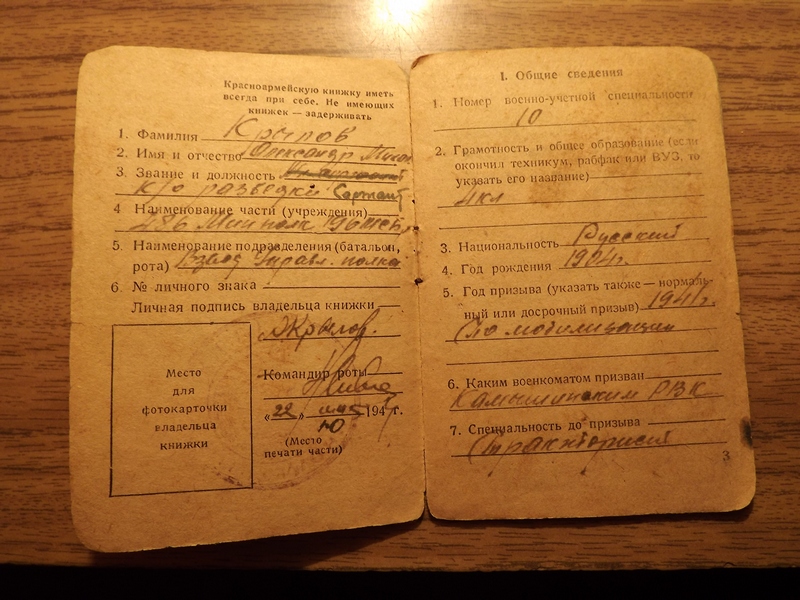 Красноармейскую книжку иметь
всегда при себе. Не имеющих
книжек — задерживать
1. Фамилия Крылов
2. Имя и отчество Александр
3. Звание и должность
к/о разведки Сержант
4 Наименование части (учреждения)
5. Наименование подразделения (батальон,
рота) Взвод Управл. полка
6. № личного знака
Личная подпись владельца книжки
АКрылов.
Место
для
фотокарточки
владельца
книжки
Командир роты
«22» мая 194 г.
(Место
печати части)
I. Общие сведения
1. Номер военно-учетной специальности
10
2. Грамотность и общее образование (если
окончил техникум, рабфак или ВУЗ, то
указать его название)
4кл
3. Национальность Русский
4. Год рождения 1904г.
5. Год призыва (указать также — нормаль-
ный или досрочный призыв) 1941г.
По мобилизации
6. Каким военкоматом призван
Камышинским РВК
7. Специальность до призыва
Тракторист
3